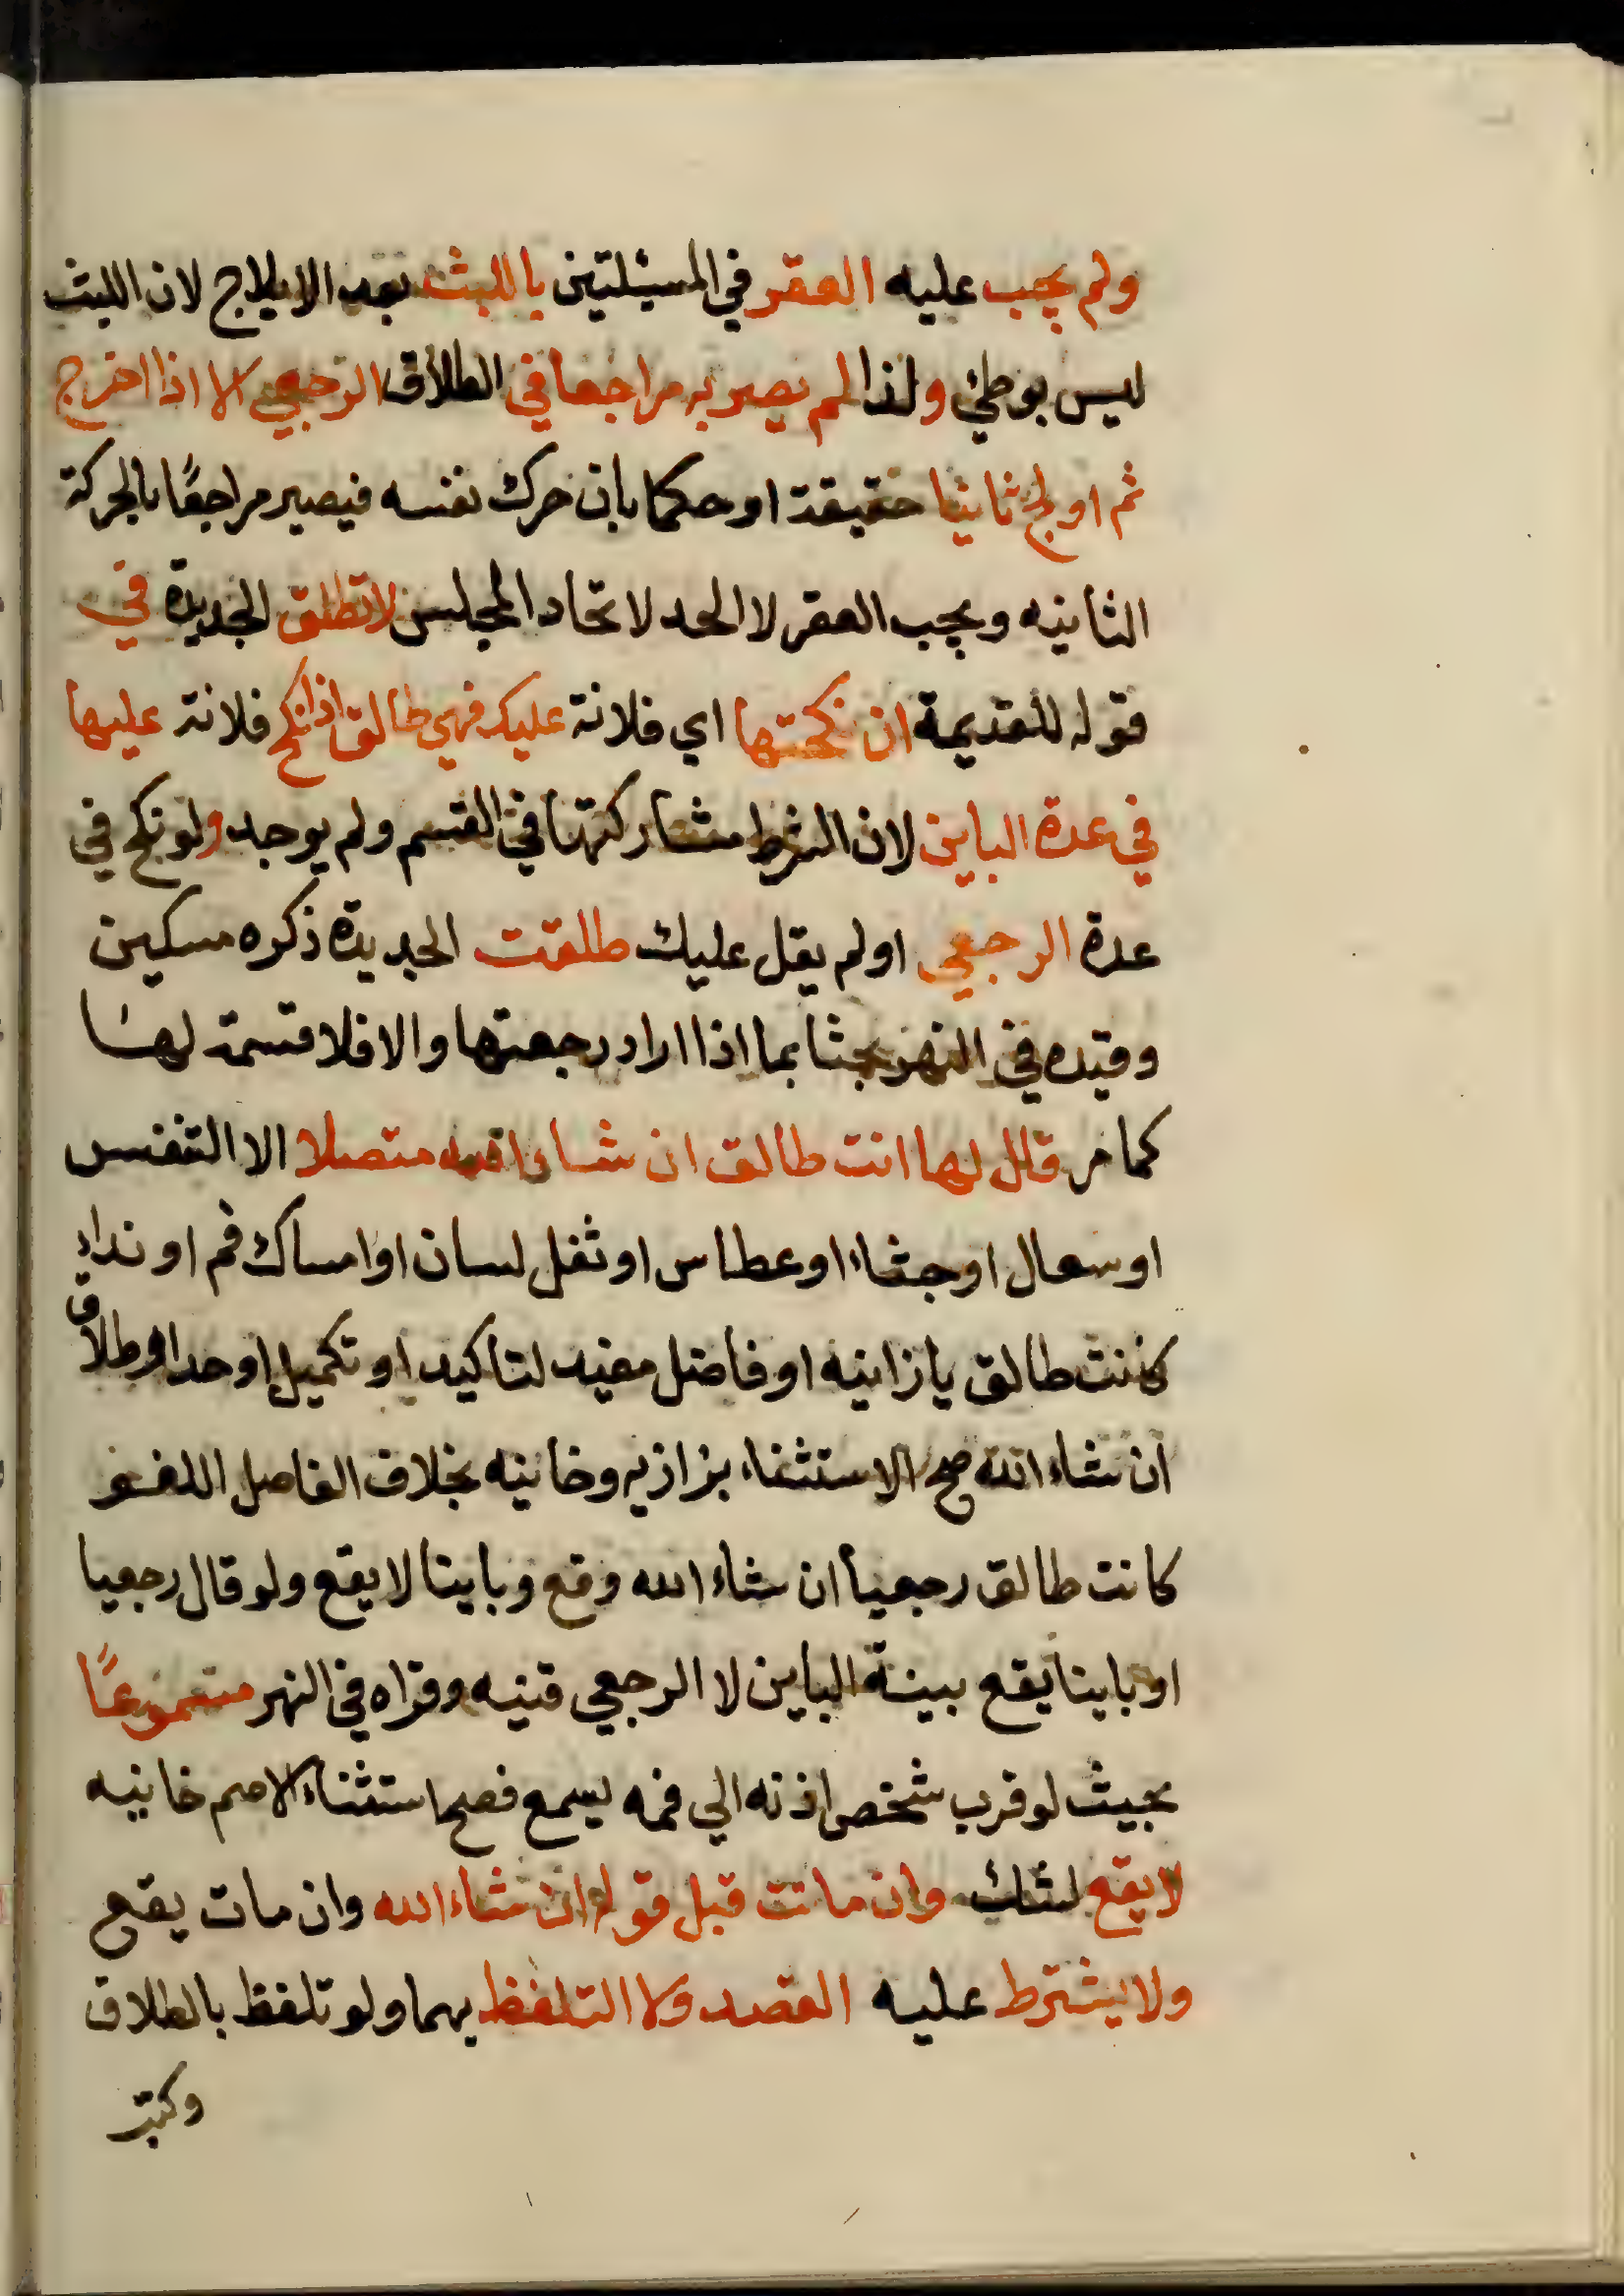 ولم يجب عليه العقر في المسئلتين باللبث بعد الايلاج لان اللبث
ليس بوطئ ولذا لم يصر به مراجعا في الطلاق الرجعي الا اذا اخرج
ثم اولج ثانيا حقيقة او حكما بان حرك نفسه فيصير مراجعًا بالحركة
الثانيه ويجب العقر لا الحد لاتحاد المجلس لا تطلق الجديدة في
قوله للقديمة ان نكحتها اي فلانة عليك فهي طالق اذا نكح فلانة عليها
في عدة الباين لان الشرط مشاركتها في القسم ولم يوجد ولو نكح في
عدة الرجعي او لم يقل عليك طلقت الجديدة ذكره مسكين
وقيده في النهر بحثا بما اذا اراد رجعتها والا فلا قسمة لها
كما مر قال لها انت طالق ان شاء الله متصلا الا التنفس
او سعال او جشاء او عطاس او ثقل لسان او امساك فم او نداء
كانت طالق يا زانيه او فاصل مفيد لتاكيد او تكميل او حد او طلاق
ان شاء الله صح الاستثناء بزازيه وخانيه بخلاف الفاصل اللغو
كانت طالق رجعيا ان شاء الله وقع وباينا لا يقع ولو قال رجعيا
او باينا يقع بينة الباين لا الرجعي قنيه وقواه في النهر مسموعًا
بحيث لو قرب شخص اذنه الي فمه يسمع فصح استثناء الاصم خانيه
لا يقع لشك وان ماتت قبل قوله ان شاء الله وان مات يقع
ولا يشترط عليه القصد ولا التلفظ بهما ولو تلفظ بالطلاق
وكتب